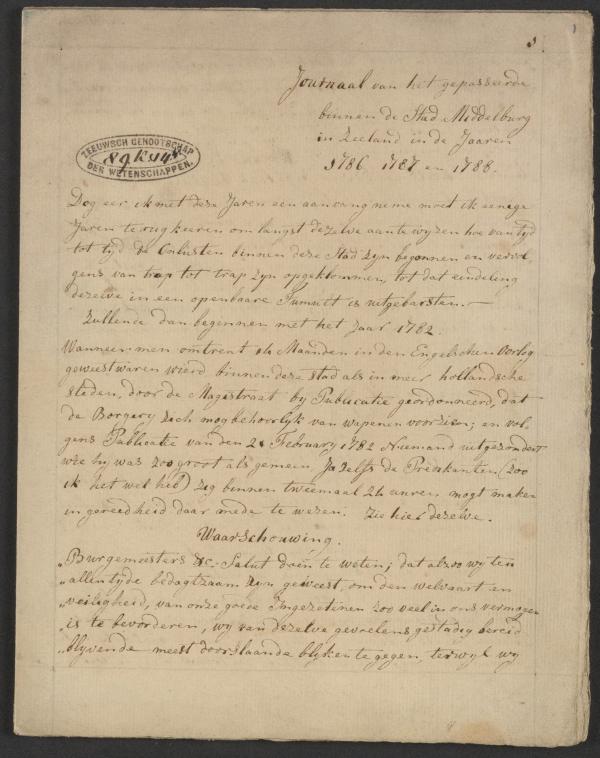 3
Journaal van het gepasseerde
binnen de Stad Middelburg
in Zeeland in de Jaaren
1786 1787 en 1788.
ZEEUWSCH GENOOTSCHAP
DER WETENSCHAPPEN.
Dog eer ik met deze Jaren een aanvang neme moet ik eenege
Jaren terug keeren om langst dezelve aan te wyzen hoe van tyd
tot tyd de Onlusten binnen deze Stad zyn begonnen en vervol
gens van trap tot trap zyn opgeklommen, tot dat eindeling
dezelve in een openbaare Tumult is uitgebarsten.—
Zullende dan begennen met het Jaar 1782.
Wanneer men omtrent Maanden in den Engelschen Oorlog
geweest waren wierd binnen deze stad als in meer hollandsche
steden, door de Magistraat by Publicatie geordonneerd, dat
de Borgery zich mogt behoorlyk van wapenen voorzien; en vol
gens Publicatie van den 2 February 1782 Niemand uitgezondert
wie hy was zoo groot als gemeen Ja Zelfs de Predikanten (zoo
ik het wel heb) zig binnen tweemaal 24 uuren mogt maken
in gereedheid daar mede te wezen. Zie hier dezelve.
Waarschouwing.
„Burgemeesters &c. Salut doen te weten; dat alzoo wy ten
„allen tyde bedagtzaam zyn geweest, om den welvaart en
„veiligheid, van onze goede Ingezetenen zoo veel in ons vermogen
„is te bevorderen, wy van dezelve gevoelens gestadig bereid
„blyvende meest doorslaande blyken te gegen, terwyl wy